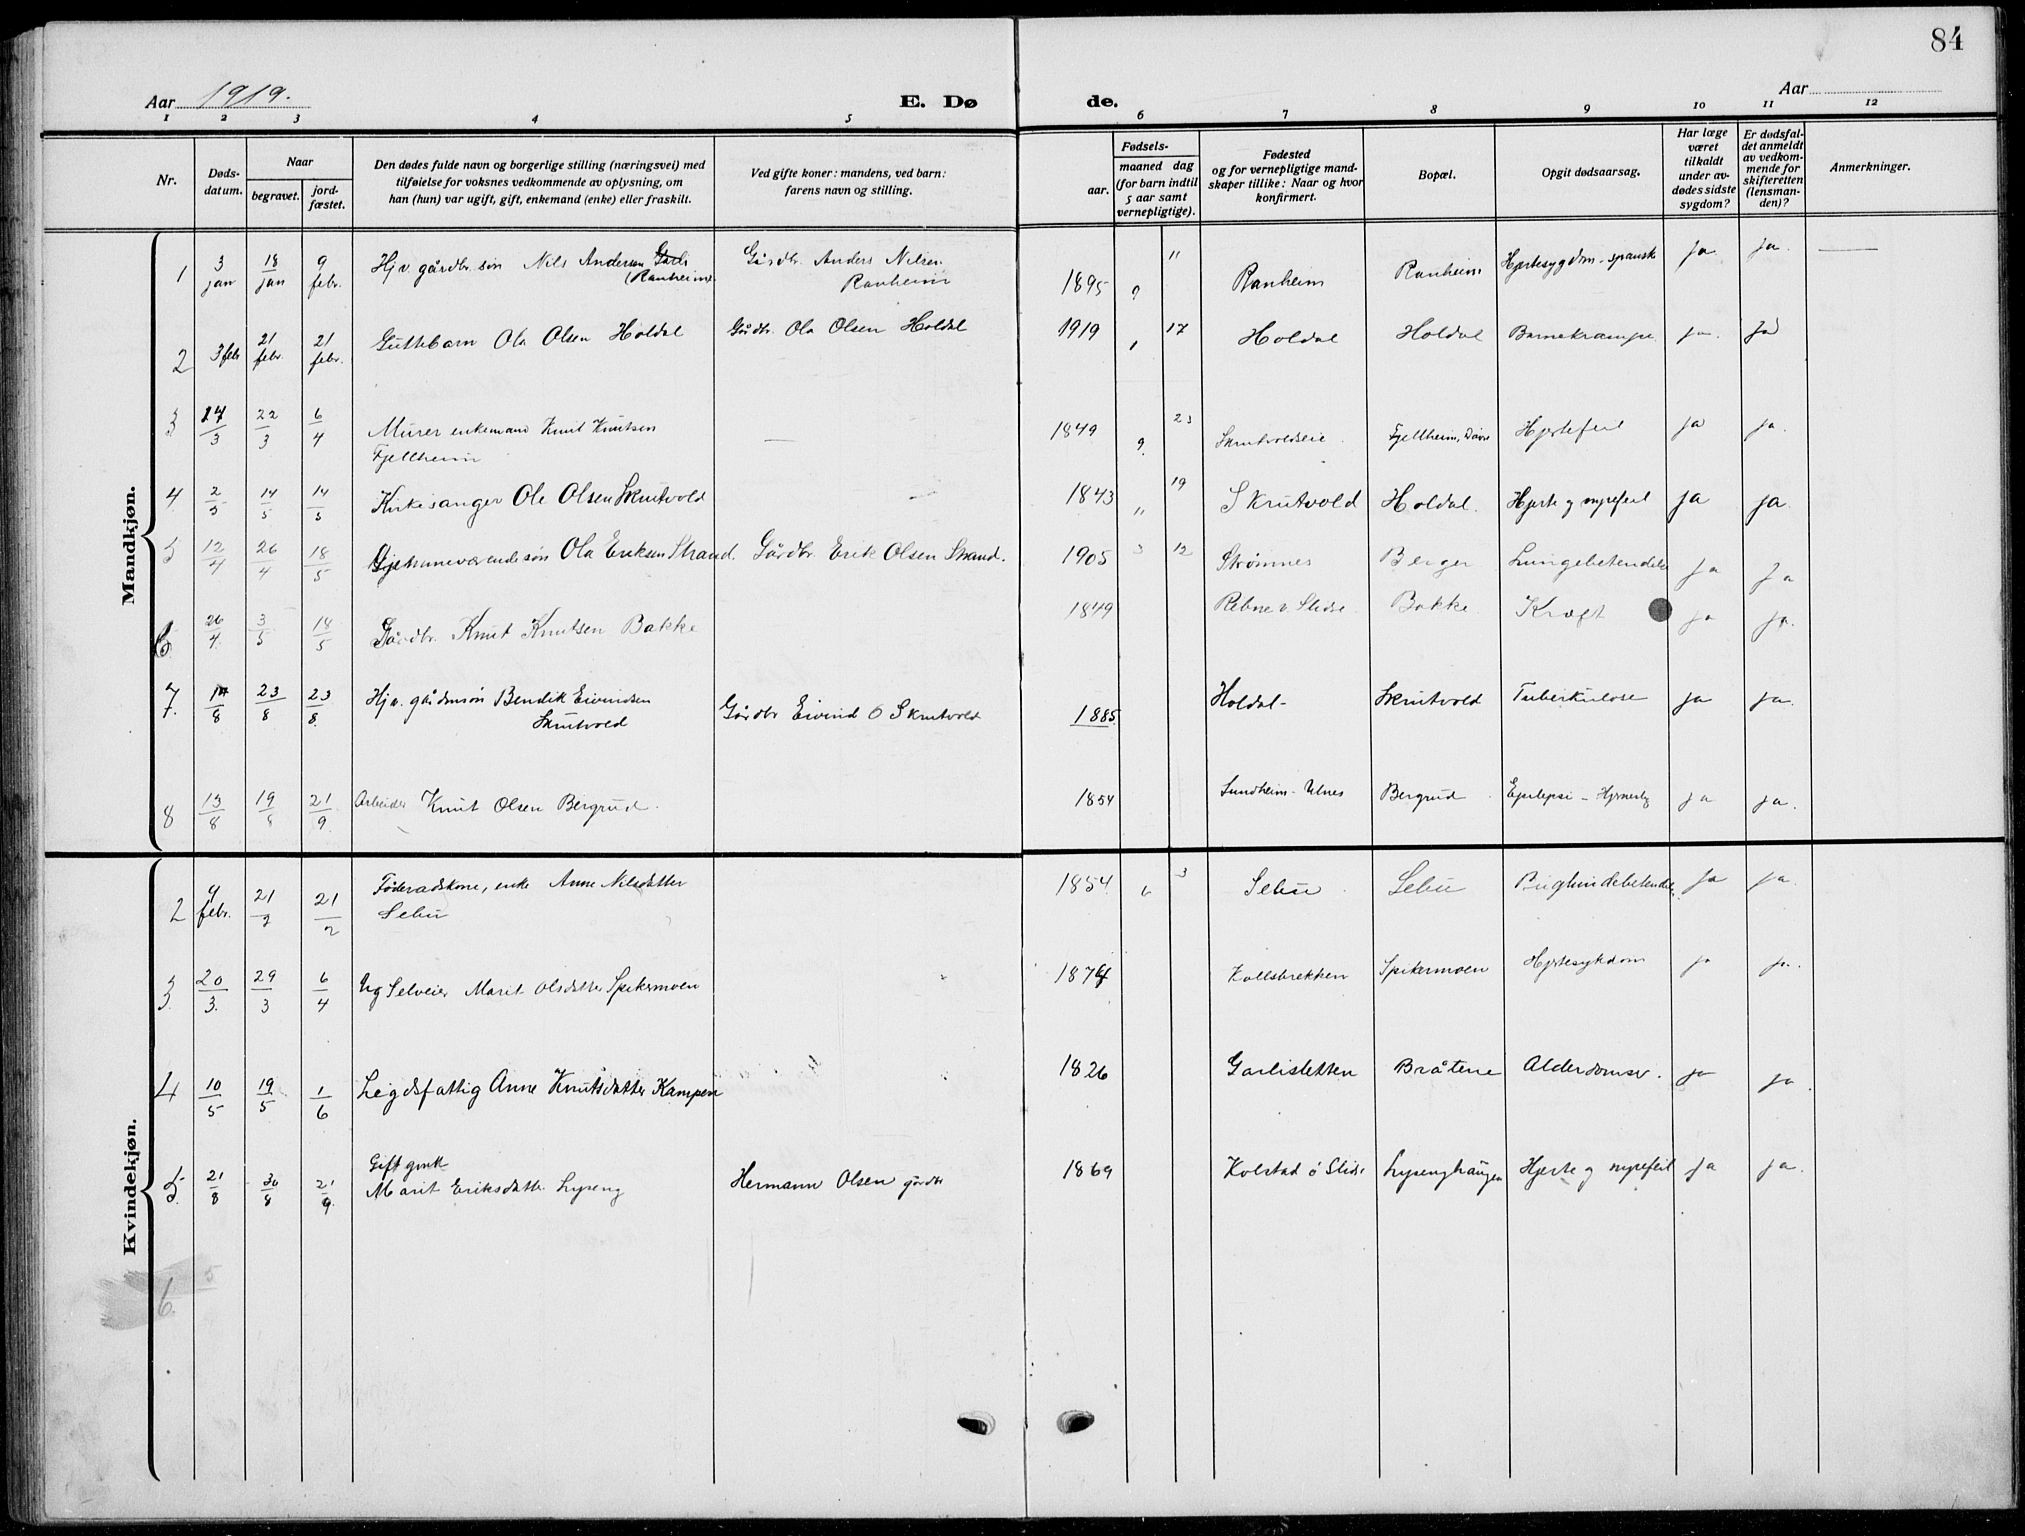 84
Aar 1919.
E. Dø
de.
Aar
1 2 3 4 5 6 7 8 9 10 11 12
Nr.
Døds-
datum.
Naar
begravet.
jord-
fæstet.
Den dødes fulde navn og borgerlige stilling (næringsvei) med
tilføielse for voksnes vedkommende av oplysning, om
han (hun) var ugift, gift, enkemand (enke) eller fraskilt.
Ved gifte koner: mandens, ved barn:
farens navn og stilling.
Fødsels-
aar.
maaned dag
(for barn indtil
5 aar samt
vernepligtige).
Fødested
og for vernepligtige mand-
skaper tillike: Naar og hvor
konfirmert.
Bopæl.
Opgit dødsaarsag.
Har læge
været
tilkaldt
under av-
dødes sidste
sygdom?
Er dødsfal-
det anmeldt
av vedkom-
mende for
skifteretten
(lensman-
den)?
Anmerkninger.
Mandkjøn.
1 3 jan 18 jan 9 febr. Hjv. gårdbr. søn Nils Andersen
(Ranheim) Gårdbr. Anders Nilsen
Ranheim 1895 9 11 Ranheim Ranheim Hjertesygdom - spansk ja ja.
2 3 febr 21 febr. 21 febr. Guttebarn Ola Olsen Holdal Gårdbr. Ola Olsen Holdal 1919 1 17 Holdal Holdal Barnekrampe ja. ja
3 14/3 22/3 6/4 Murer enkemand Knut Knutsen
Fjellheim 1849 9. 23 Skrutvoldseie Fjellheim, Hjertefeil ja ja.
4 2/5 14/5 14/5 Kirkesanger Ole Olsen Skrutvold 1843 11 19 Skrutvold Holdal. Hjerte og nyrefeil ja ja.
5 12/4 26/4 18/5 Hjemmeværende søn Ola Eriksen Strand. Gårdbr. Erik Olsen Strand. 1905 3 12 Strømnes Berger Lungebetendelse ja ja
6. 26/4. 3/5 18/5 Gårdbr. Knut Knutsen Bakke 1849 Rebne v. Slidre. Bakke Kræft ja ja.
7. 23/8 23/8. Hjv. gårdmsøn Bendik Eivindsen
Skrutvold Gårdbr Eivind O Skrutvold 1885. Holdal- Skrutvold Tuberkulose ja ja.
8 13/8 19/8 21/9. Arbeider Knut Olsen Bergrud. 1854 Sundheim - Ulnes Bergrud Epilepsi - ja ja.
Kvindekjøn.
2 9 febr. 21/2 21/2 Føderadskone, enke Anne Nilsdatter
Sebu 1854 6 3 Sebu Sebu Bughindebetendel. ja ja.
3. 20/3. 29/3 6/4 Ug Selveier Marit Olsdatter Spikermoen 1874 Kollsbrekken Spikermoen Hjertesykdom ja ja.
4 10/5 19/5 1/6 Legdsfattig Anne Knutsdatter Kampen 1826 Garlisletten Bråtene Alderdomssv. ja ja.
5. 21/8 30/8 21/9 Gift
Marit Eriksdattr. Lyseng Hermann Olsen gårdbr 1869 Kolstad ø Slidr. Lysenghaugen Hjerte og nyrefeil ja ja.
6.